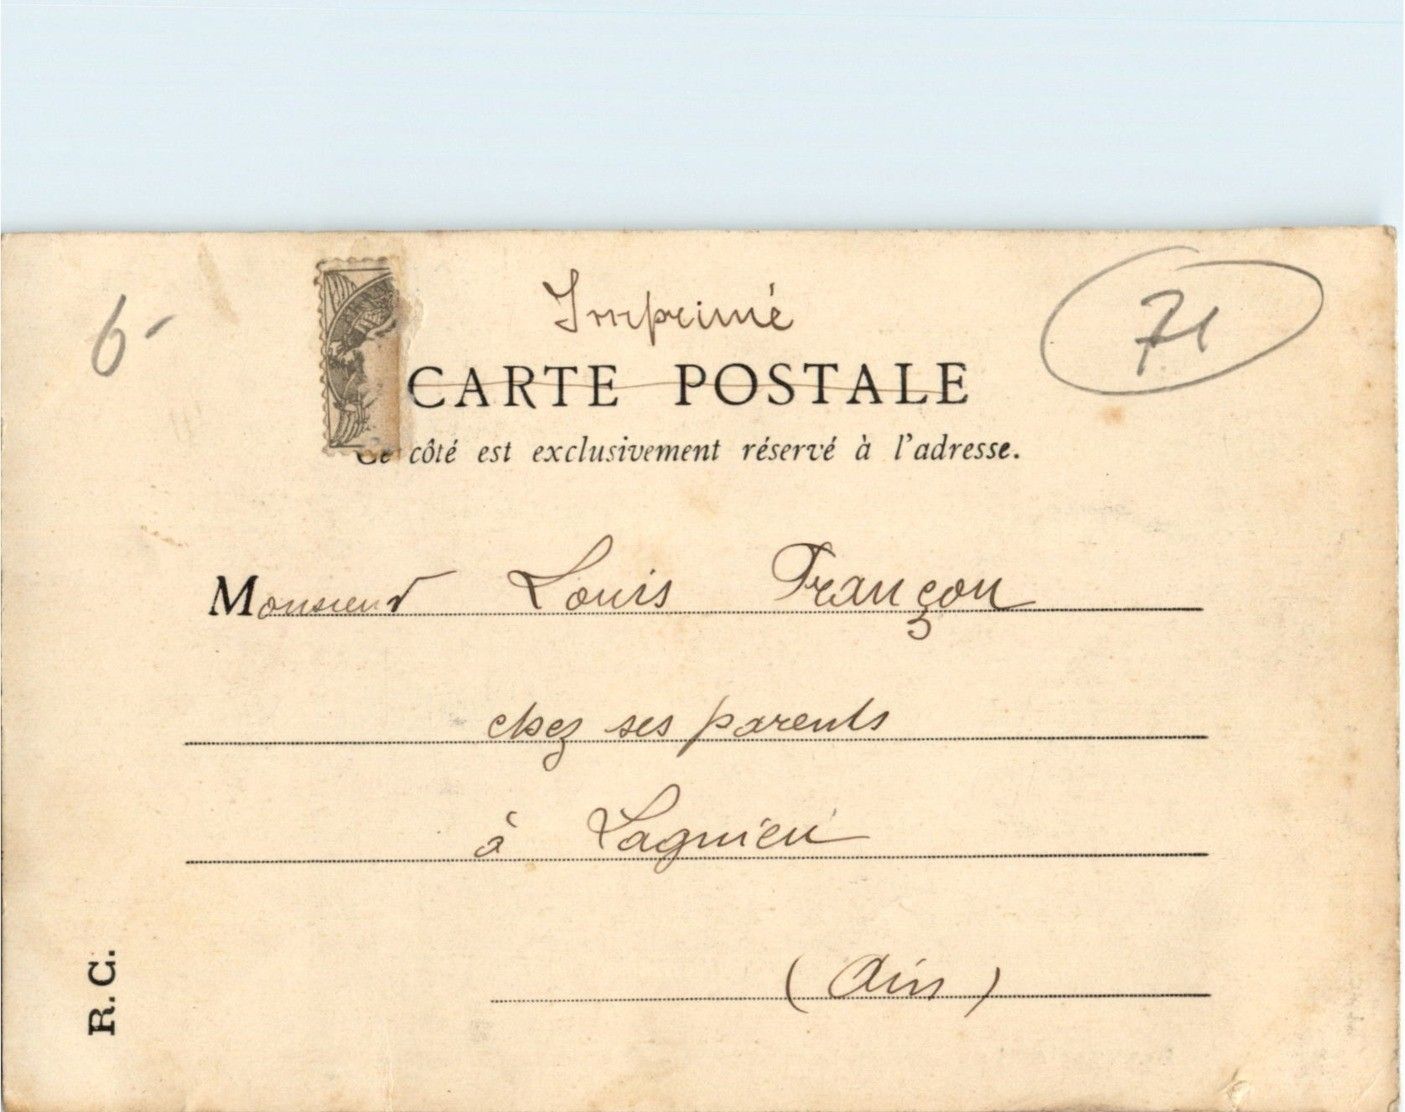 6-
Imprimé
71
CARTE POSTALE
Ce côté est exclusivement réservé à l'adresse.
Monsieur Louis Françon
chez ses parents
à Lagnieu
(Ain)
R. C.